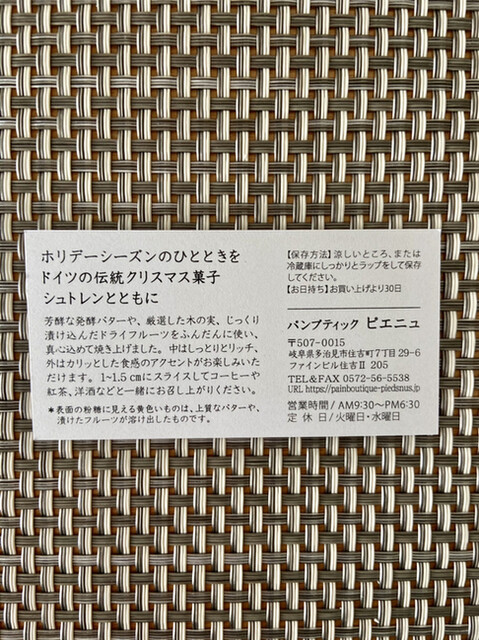 ホリデーシーズンのひとときを
ドイツの伝統クリスマス菓子
シュトレンとともに
芳醇な発酵バターや、厳選した木の実、じっくり
漬け込んだドライフルーツをふんだんに使い、
真心込めて焼き上げました。中はしっとりとリッチ、
外はカリッとした食感のアクセントがお楽しみいた
だけます。1~1.5㎝にスライスしてコーヒーや
紅茶、洋酒などと一緒にお召し上がりください。
*表面の粉糖に見える黄色いものは、上質なバターや、
漬けたフルーツが溶け出したものです。
【保存方法】涼しいところ、または
冷蔵庫にしっかりとラップをして保存
してください。
【お日持ち】お買い上げより30日
パンブティック ピエニュ
〒507-0015
岐阜県多治見市住吉町7丁目29-6
ファインビル住吉Ⅱ 205
TEL&FAX 0572-56-5538
URL https://painboutique-piedsnus.jp
営業時間/AM9:30~PM6:30
定休日/火曜日・水曜日